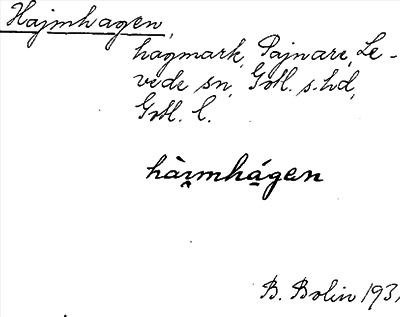 Hajmhagen,
hagmark, Pajnare, Le-
vede sn, Gotl. s. hd,
Gotl. l.
hàı̯mhá̱gen
B. Bolin 1931